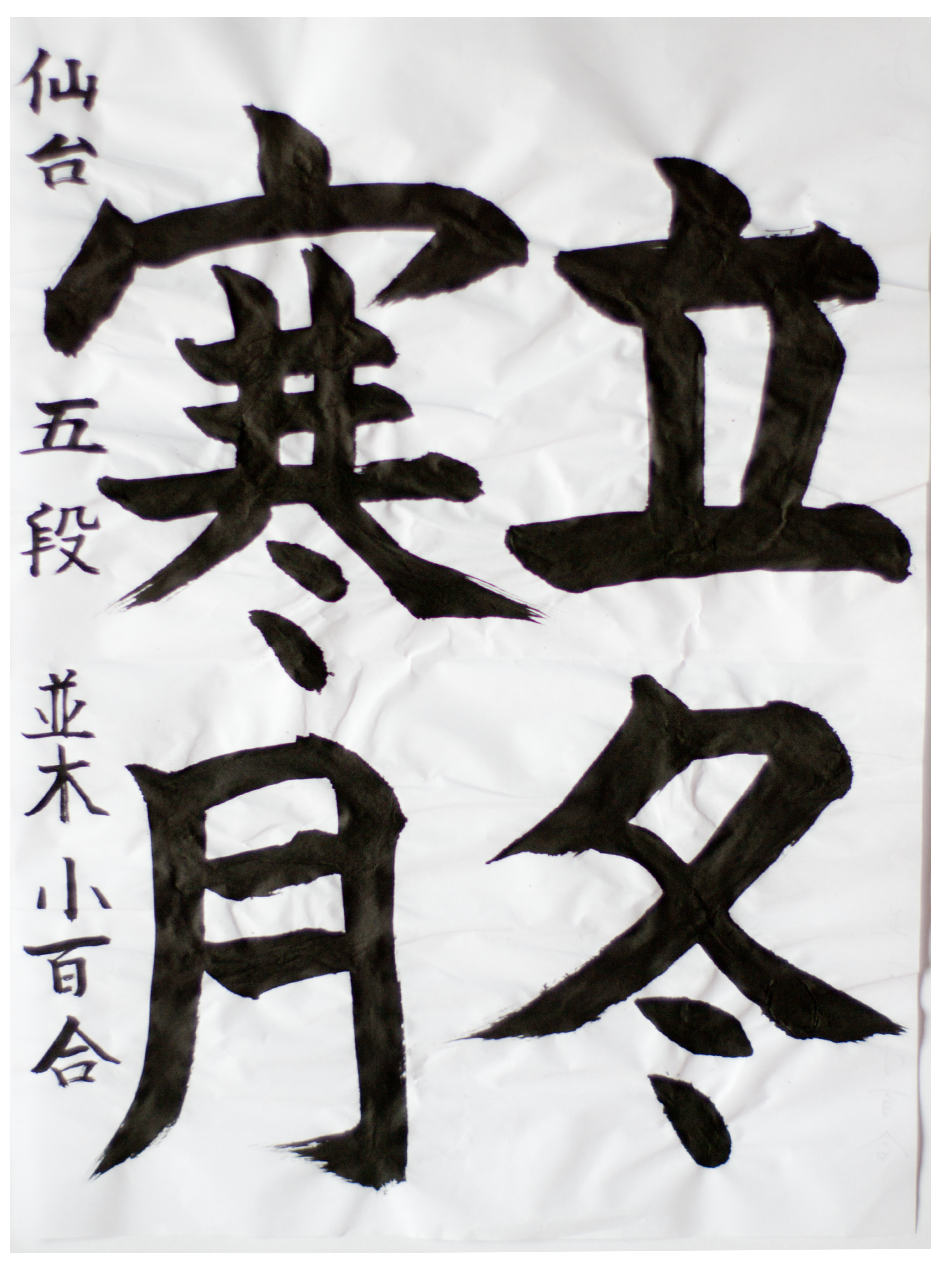 立冬
寒月
仙台 五段 並木小百合